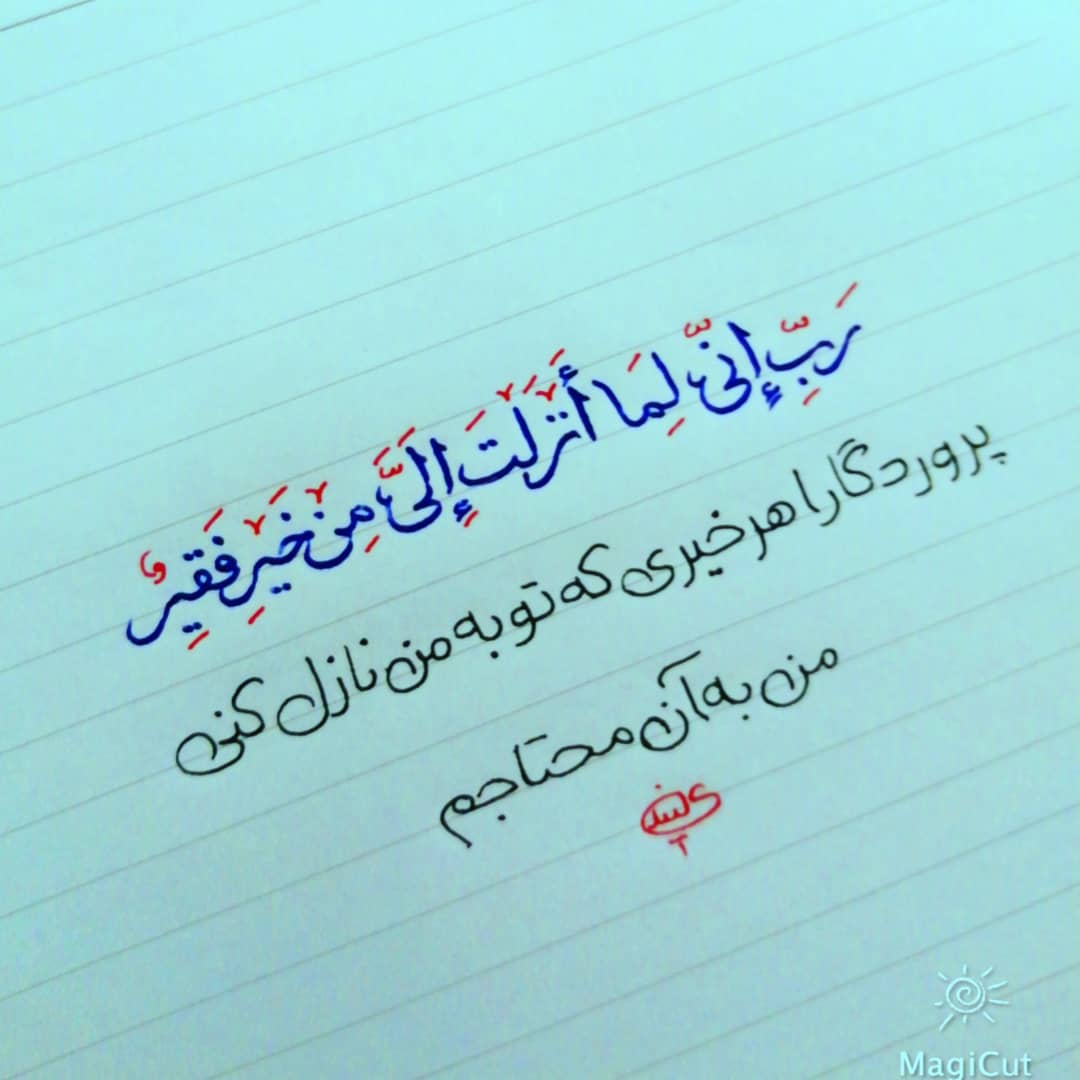 رَبِّ إِنّیِ لِمَا أَنْزَلْتَ إِلَیَّ مِنْ خَیْرٍ فَقِیرٌ
پروردگارا هر خیری که تو به من نازل کنی
من به آن محتاجم
MagiCut